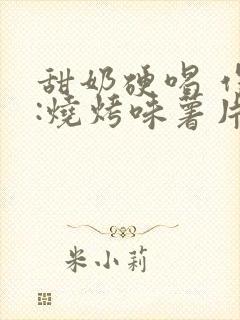 甜奶硬唱
:燒烤味薯片
米小莉